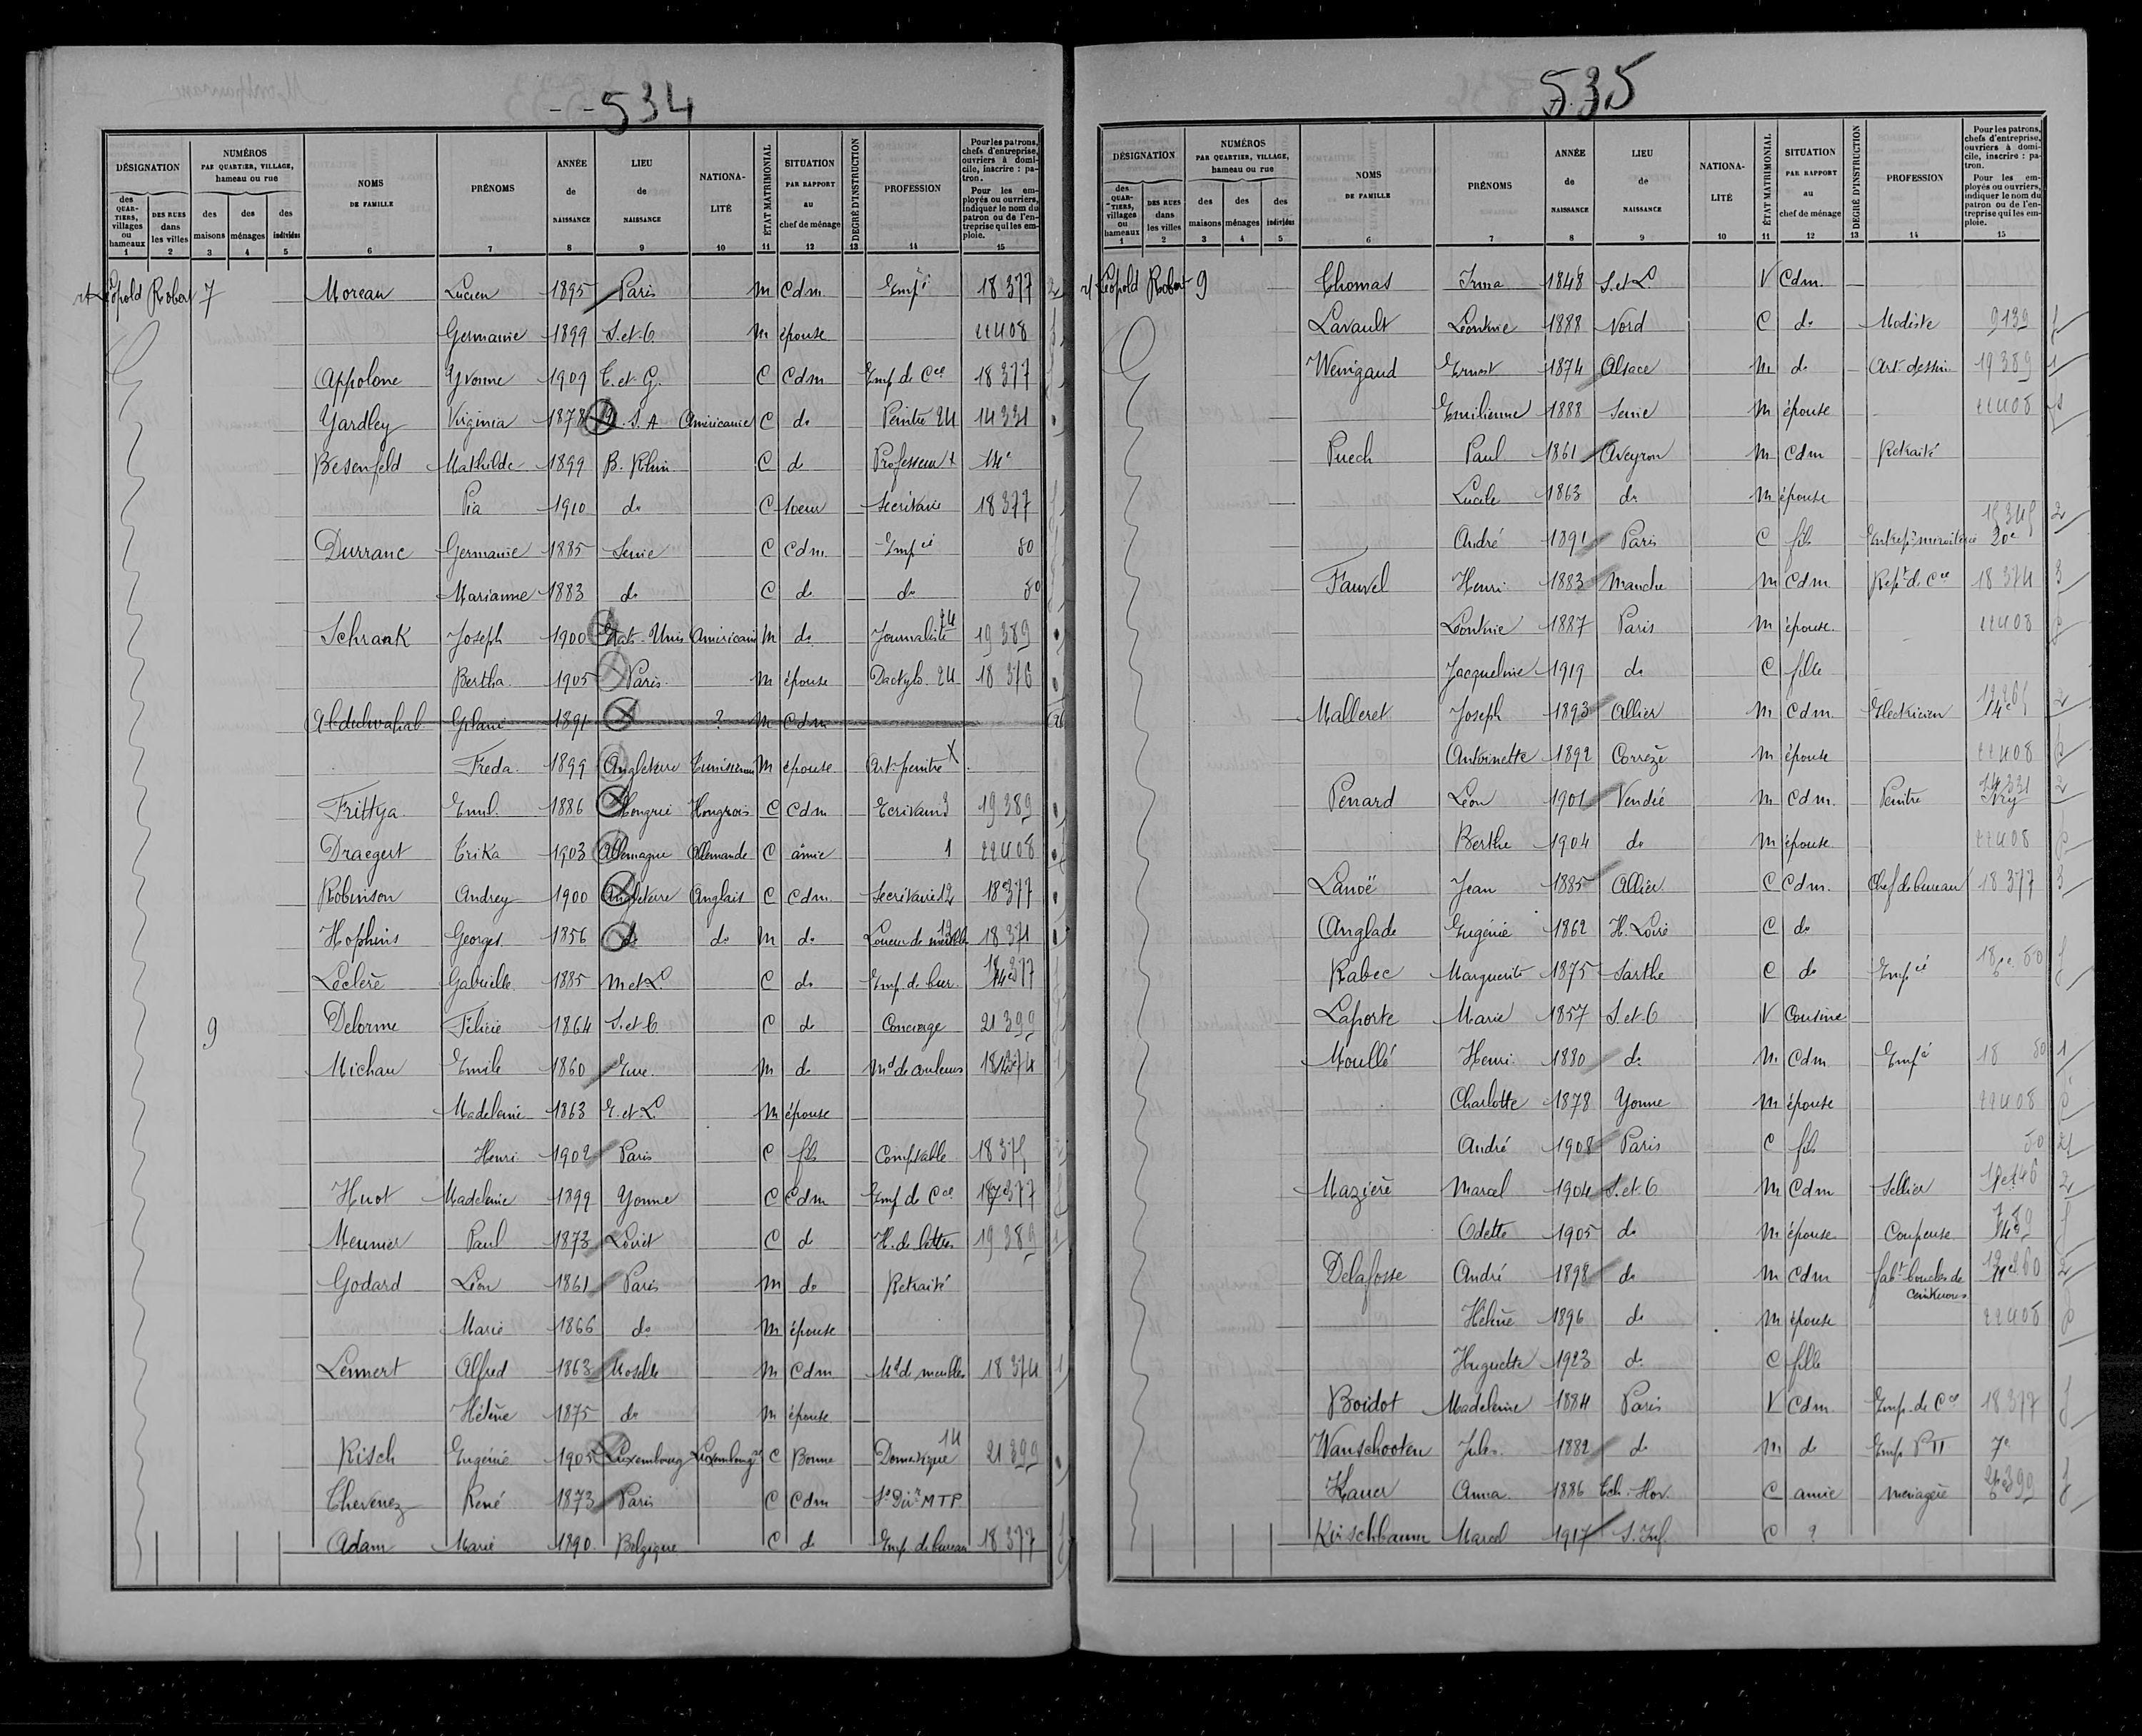 534
DÉSIGNATION
NUMÉROS PAR QUARTIER, VILLAGE, hameau ou rue
NOMS DE FAMILLE
PRÉNOMS
ANNÉE de NAISSANCE
LIEU de NAISSANCE
NATIONALITÉ
ÉTAT MATRIMONIAL
SITUATION PAR RAPPORT au chef de ménage
DEGRÉ D'INSTRUCTION
PROFESSION
Pour les patrons, chefs d'entreprise, ouvriers à domicile, inscrire : patron.
Pour les employés ou ouvriers, indiquer le nom du patron ou de l'entreprise qui les emploie.
des QUARTIERS, villages ou hameaux
DES RUES dans les villes
des maisons
des ménages
des individus
1 2 3 4 5 6 7 8 9 10 11 12 13 14 15
Léopold Robert 7 Moreau Lucien 1895 Paris M Cdm Empé 18 377 2
Germaine 1899 S.et.O M épouse 22408
Appolone Yvonne 1909 T.et.G. C Cdm Emp de Cce 18 377
Yardley Virginia 1878 U.S.A Américaine C do Peintre 24 14 331
Besenfeld Mathilde 1899 B. Rhin C do Professeur 14e
Pia 1910 do C soeur Secrétaire 18 377
Durranc Germaine 1885 Seine C Cdm Empée 80
Marianne 1883 do C do do 80
Schrank Joseph 1900 Etats-Unis Américain M do Journaliste 24 19 389
Bertha 1905 Paris M épouse Dactylo 24 18 376
Abdulwahab Gilani 1891 ? M Cdm
Freda 1899 Angleterre Tunisienne M épouse Art-peintre
Frittya Emil 1886 Hongrie Hongrois C Cdm Ecrivain 3 19 389
Draegert Erika 1903 Allemagne Allemande C amie 1 22408
Robinson Audrey 1900 Angleterre Anglais C Cdm Secrétaire 12 18 377
Hophins Georges 1856 do do M do Loueur de meublés 18 371
Leclère Gabrielle 1885 M et L. C do Emp. de bur. 18 377
9 Delorme Félicie 1864 S.et O C do Concierge 21 399
Michau Emile 1860 Eure M do Md de couleurs 18 374 1
Madeleine 1863 E.et.L. M épouse
Henri 1902 Paris C fils Comptable 18 375
Huot Madeleine 1899 Yonne C Cdm Emp de Cce 18 377
Meunier Paul 1873 Loiret C do H. de lettres 19 389 1
Godard Léon 1861 Paris M do Retraité
Marie 1866 do M épouse
Lennert Alfred 1863 Moselle M Cdm Md de meubles 18 374 1
Hélène 1875 do M épouse
Risch Eugénie 1905 Luxembourg Luxembourgse C Bonne Domestique 14 21 399
Chevenez René 1873 Paris C Cdm MTP
Adam Marie 1890 Belgique C do Emp. de bureau 18 377
535
DÉSIGNATION
NUMÉROS PAR QUARTIER, VILLAGE, hameau ou rue
NOMS DE FAMILLE
PRÉNOMS
ANNÉE de NAISSANCE
LIEU de NAISSANCE
NATIONALITÉ
ÉTAT MATRIMONIAL
SITUATION PAR RAPPORT au chef de ménage
DEGRÉ D'INSTRUCTION
PROFESSION
Pour les patrons, chefs d'entreprise, ouvriers à domicile, inscrire : patron.
Pour les employés ou ouvriers, indiquer le nom du patron ou de l'entreprise qui les emploie.
des QUARTIERS, villages ou hameaux
DES RUES dans les villes
des maisons
des ménages
des individus
1 2 3 4 5 6 7 8 9 10 11 12 13 14 15
Léopold Robert 9 Thomas Irma 1848 S.et L. V Cdm.
Lavault Léontine 1888 Nord C do Modiste 9139
Wenigaud Ernest 1874 Alsace M do Art-dessin 19 389 1
Emilienne 1888 Seine M épouse 22408
Puech Paul 1861 Aveyron M Cdm Retraité
Lucile 1863 do M épouse
André 1891 Paris C fils Entrepr miroiterie 20e 2
Fauvel Henri 1883 Manche M Cdm Rept de Cce 18 374 3
Léontine 1887 Paris M épouse 22408
Jacqueline 1919 do C fille
Malleret Joseph 1893 Allier M Cdm Electricien 14e 2
Antoinette 1892 Corrèze M épouse 22408
Penard Léon 1901 Vendée M Cdm. Peintre 14 331 Ivry 2
Berthe 1904 do M épouse 22408
Lanoë Jean 1885 Allier C Cdm. Chef de bureau 18 377 3
Anglade Eugénie 1862 H. Loire C do
Rabec Marguerite 1875 Sarthe C do Empée 18 80
Laporte Marie 1857 S.et.O V Cousine
Moullé Henri 1880 do M Cdm Empé 18 80 1
Charlotte 1878 Yonne M épouse 22408
André 1908 Paris C fils 80 21
Mazière Marcel 1904 S.et.O M Cdm Sellier 2
Odette 1905 do M épouse Coupeuse 14e
Delafosse André 1898 do M Cdm fabt boucles de ceintures 2
Hélène 1896 do M épouse 22408
Huguette 1923 do C fille
Boidot Madeleine 1884 Paris V Cdm Emp. de Cce 18 377
Wanschooten Jules 1882 do M do Emp PTT 7e
Hauer Anna 1886 Tch. Slov. C amie Ménagère 399
Kirschbaum Marcel 1917 S. Inf. C ?